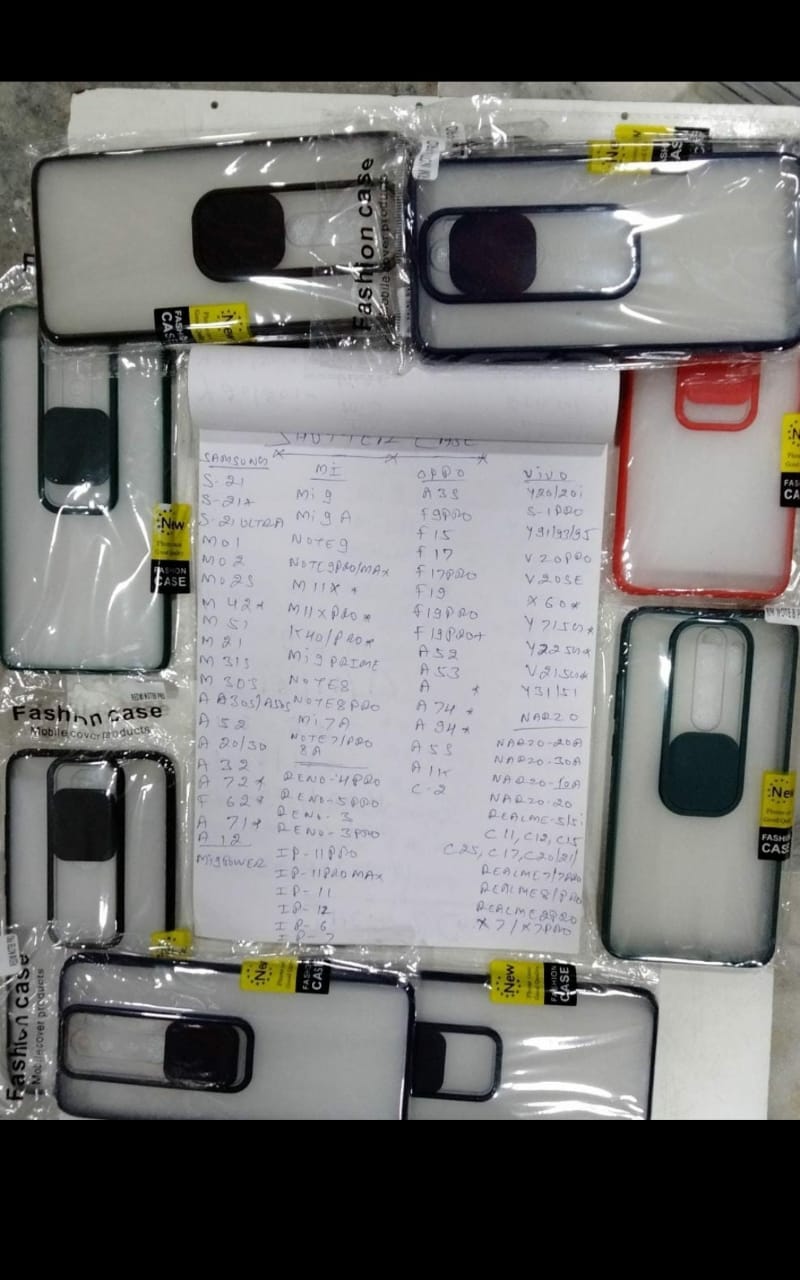 Fashion case
Mobile cover products
New
FASHION
CASE
New
CASE
SHUTTER CASE
SAMSUNG
S-21
S-21+
S-21 ULTRA
M01
M02
M02S
M 42*
M 51
M 21
M 31S
M 30S
A A30S/A50S
A 52
A 20/30
A 32
A 72*
F 62*
A 71*
A 12
Mi9POWER
MI
Mi 9
Mi 9 A
NOTE9
NOTE9PRO/MAX
M 11X *
M11XPRO*
K40/PRO*
Mi9 PRIME
NOTE8
NOTE8PRO
Mi 7A
NOTE7/PRO
8A
RENO-4PRO
RENO-5PRO
RENO-3
RENO-3PRO
IP-11PRO
IP-11PRO MAX
IP-11
IP-12
IP-6
IP-7
OPPO
A3S
F9PRO
F15
F17
F17PRO
F19
F19PRO
F19PRO+
A52
A53
A *
A 74 *
A 94 *
A 5S
A 1K
C-2
VIVO
Y20/20i
S-1PRO
Y91/93/95
V20PRO
V20SE
X60*
Y 71
Y 72 5G*
V21 5G*
Y31/51
NARZO
NARZO-20A
NARZO-30A
NARZO-10A
NARZO-20
REALME-5/5i
C11, C12, C15
C25, C17, C20/21/
REALME7/7PRO
REALME8/PRO
REALME2PRO
X7/X7PRO
New
FASHION
CASE
REDMI NOTE8 PRO
Fashion case
Mobile cover products
New
FASHION
CASE
Fashion case
Mobile cover products
New
CASE
New
FASHION
CASE